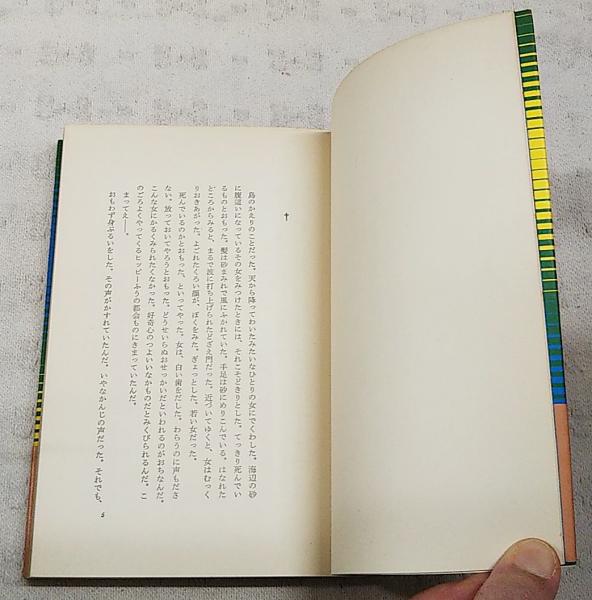 †
島のかえりのことだった。天から降ってわいたみたいなひとりの女にでくわした。海辺の砂
に腹這いになっているその女をみつけたときには、それこそどきりとした。てっきり死んでい
るものとおもった。髪は砂まみれで風にふかれていた。手足は砂にめりこんでいる。はなれた
ところからみると、まるで波に打ち上げられたどざえ門だった。近づいてゆくと、女はむっく
りおきあがった。よごれたくろい顔が、ぼくをみた。ぎょっとした。若い女だった。
死んでいるのかとおもった、といってやった。女は、白い歯をだした。わらうのに声もださ
ない。放っておいてやろうとおもった。どうせいらぬおせっかいだといわれるのがおちなんだ。
こんな女にかるくみられたくなかった。好奇心のつよいいなかものだとみくびられるんだ。こ
のごろよくやってくるヒッピーふうの都会ものにきまっていたんだ。
まってえ——。
おもわず身ぶるいをした。その声がかすれていたんだ。いやなかんじの声だった。それでも、
5